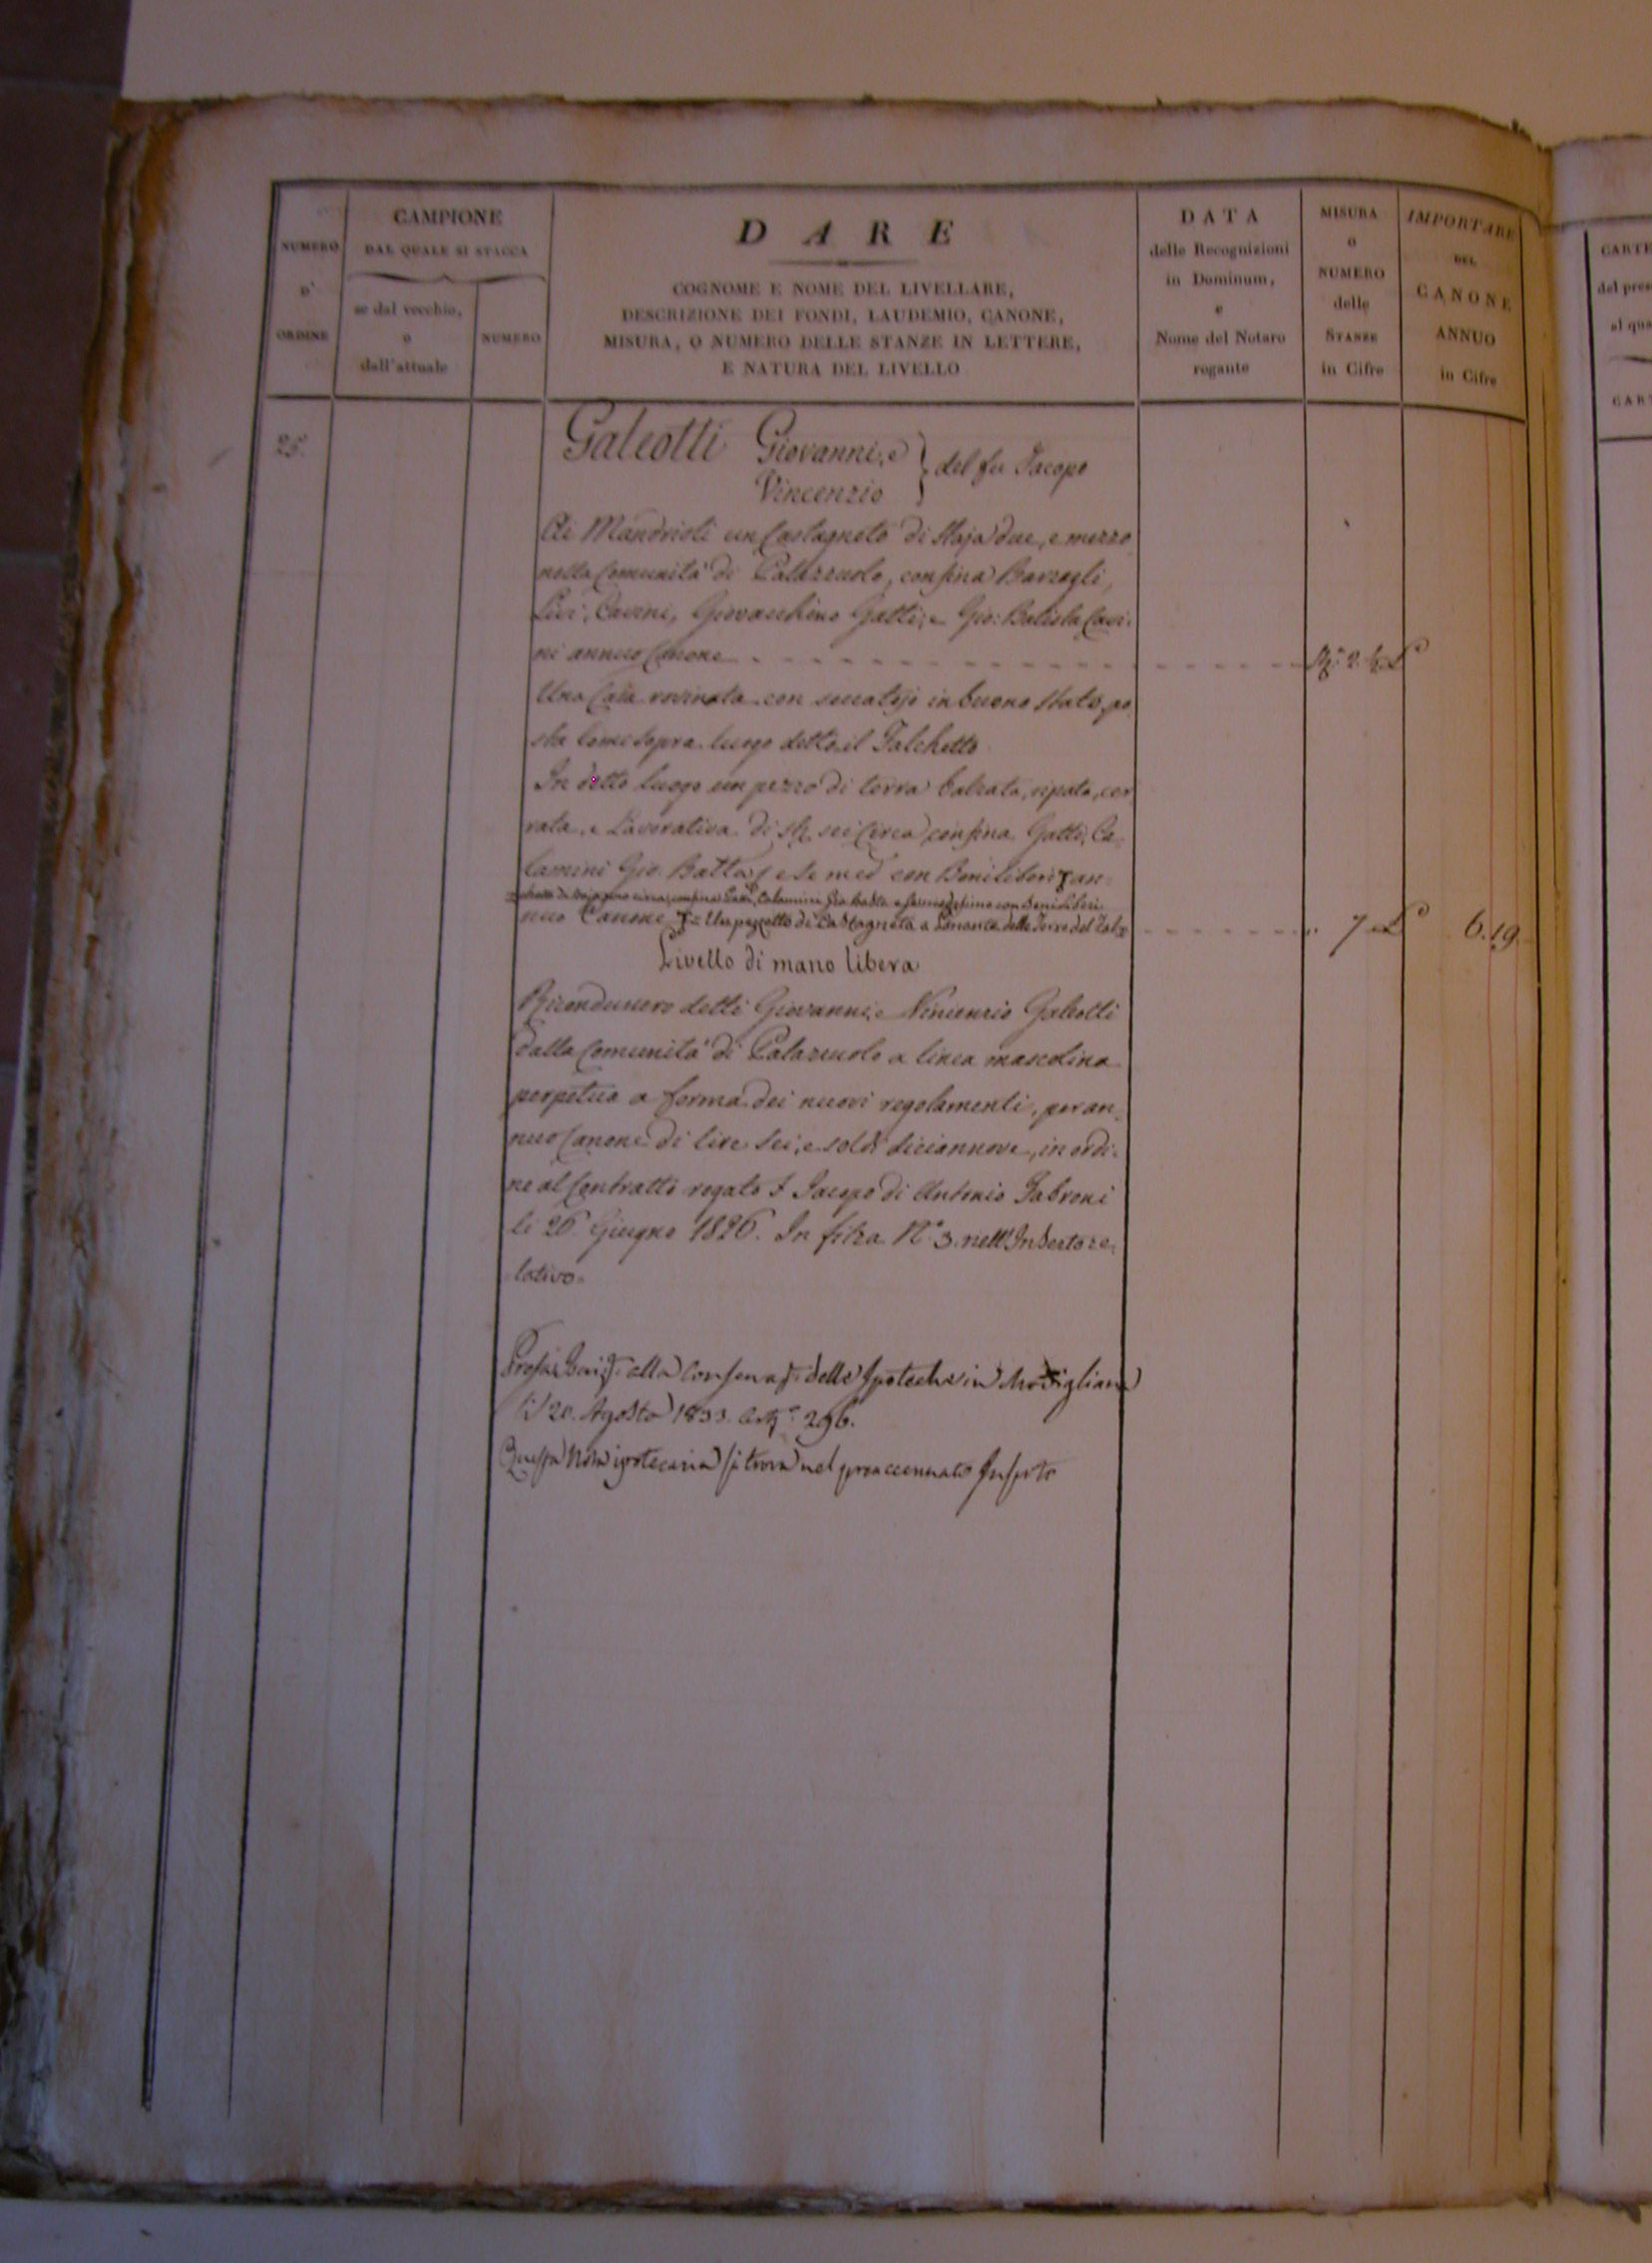 NUMERO
D'
ORDINE
CAMPIONE
DAL QUALE SI STACCA
se dal vecchio,
o
dall'attuale
NUMERO
DARE
COGNOME E NOME DEL LIVELLARE,
DESCRIZIONE DEI FONDI, LAUDEMIO, CANONE,
MISURA, O NUMERO DELLE STANZE IN LETTERE,
E NATURA DEL LIVELLO
DATA
delle Recognizioni
in Dominum,
e
Nome del Notaro
rogante
MISURA
O
NUMERO
delle
STANZE
in Cifre
IMPORTARE
DEL
CANONE
ANNUO
in Cifre
CARTE
25.
Galeotti Giovanni, e
Vincenzio
del fu Jacopo
Ai Mandrioli un Castagneto di Staja due, e mezzo
nella Comunità di Palazzuolo, confina Barzagli,
Livi, Cavini, Giovacchino Gatti, e Gio: Batista Cavi-
ni annuo Canone
Una Casa rovinata con seccatojo in buono stato, po
sta come sopra luogo detto il Falchetto
In detto luogo un pezzo di terra balzata, ripata, cer
rata, e Lavorativa di sta sei circa confina Gatti, Ca-
lamini Gio. Batta, e se med con Beni liberi an-
nuo Canone = Un pezzetto di Castagneto a Levante delle Terre del
7 6.19.
Livello di mano libera
Riconducono detti Giovanni, e Vincenzio Galeotti
dalla Comunità di Palazzuolo a linea mascolina
perpetua a forma dei nuovi regolamenti, per an-
nuo Canone di lire sei, e soldi diciannove, in ordi-
ne al Contratto rogato Jacopo di Antonio Fabroni
li 26 Giugno 1826. In filza N.° 3. nell'Inserto re-
lativo.
alla delle Ipoteche in Modigliana
li 20. Agosto 1833. 296.
Questa Nota ipotecaria si trova nel preaccennato Inserto